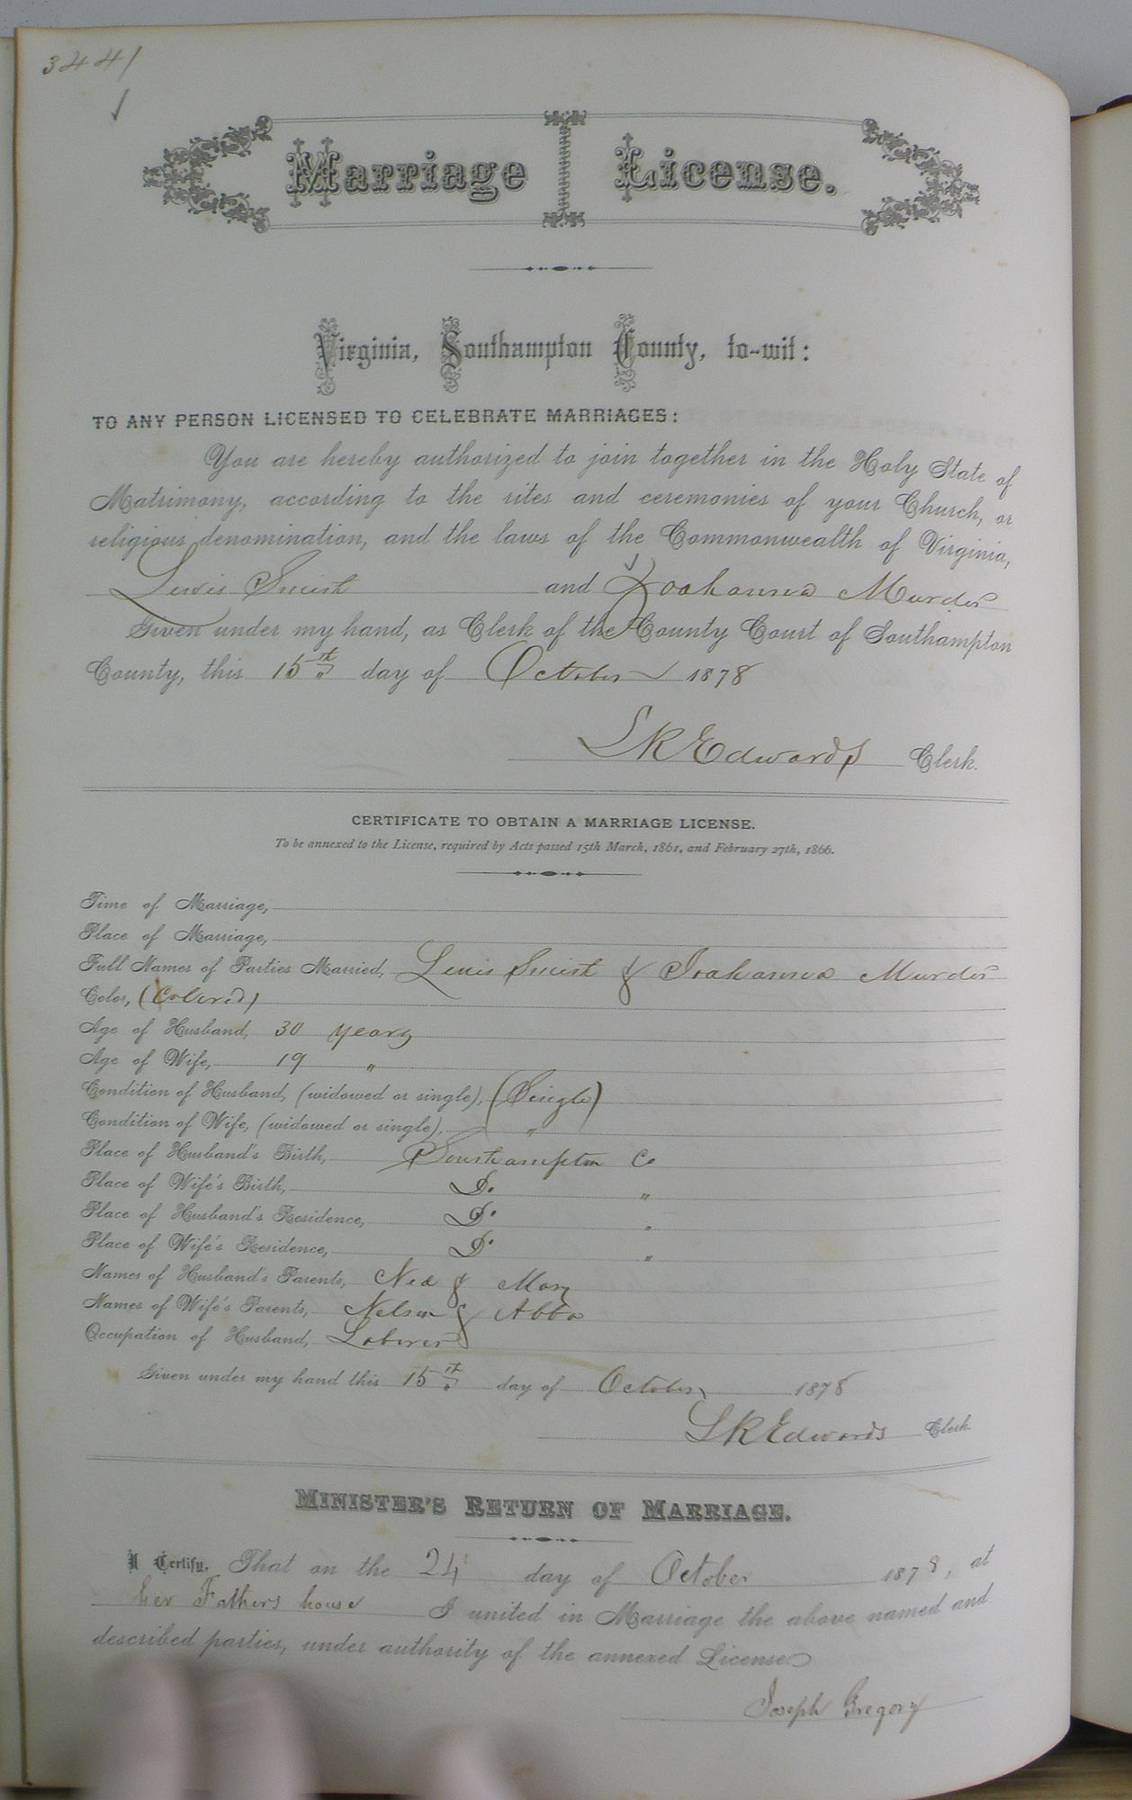 3441
Marriage License.
Virginia, Southampton County, to-wit:
TO ANY PERSON LICENSED TO CELEBRATE MARRIAGES:
You are hereby authorized to join together in the Holy State of
Matrimony, according to the rites and ceremonies of your Church, or
religious denomination, and the laws of the Commonwealth of Virginia,
Lewis and
Given under my hand, as Clerk of the County Court of Southampton
County, this 15th day of October 1878
L R Edwards Clerk.
CERTIFICATE TO OBTAIN A MARRIAGE LICENSE.
To be annexed to the License, required by Acts passed 15th March, 1861, and February 27th, 1866.
Time of Marriage,
Place of Marriage,
Full Names of Parties Married, Lewis &
Color, (Colored)
Age of Husband, 30 years
Age of Wife, 19 "
Condition of Husband, (widowed or single), (Single)
Condition of Wife, (widowed or single), "
Place of Husband's Birth, Southampton Co
Place of Wife's Birth, Do "
Place of Husband's Residence, Do "
Place of Wife's Residence, Do "
Names of Husband's Parents, Ned & Mary
Names of Wife's Parents, Nelson &
Occupation of Husband, Laborer
Given under my hand this 15th day of October 1878
L R Edwards Clerk.
MINISTER'S RETURN OF MARRIAGE.
I Certify, That on the 24 day of October 1878, at
her Fathers house I united in Marriage the above named and
described parties, under authority of the annexed License
Joseph Gregory